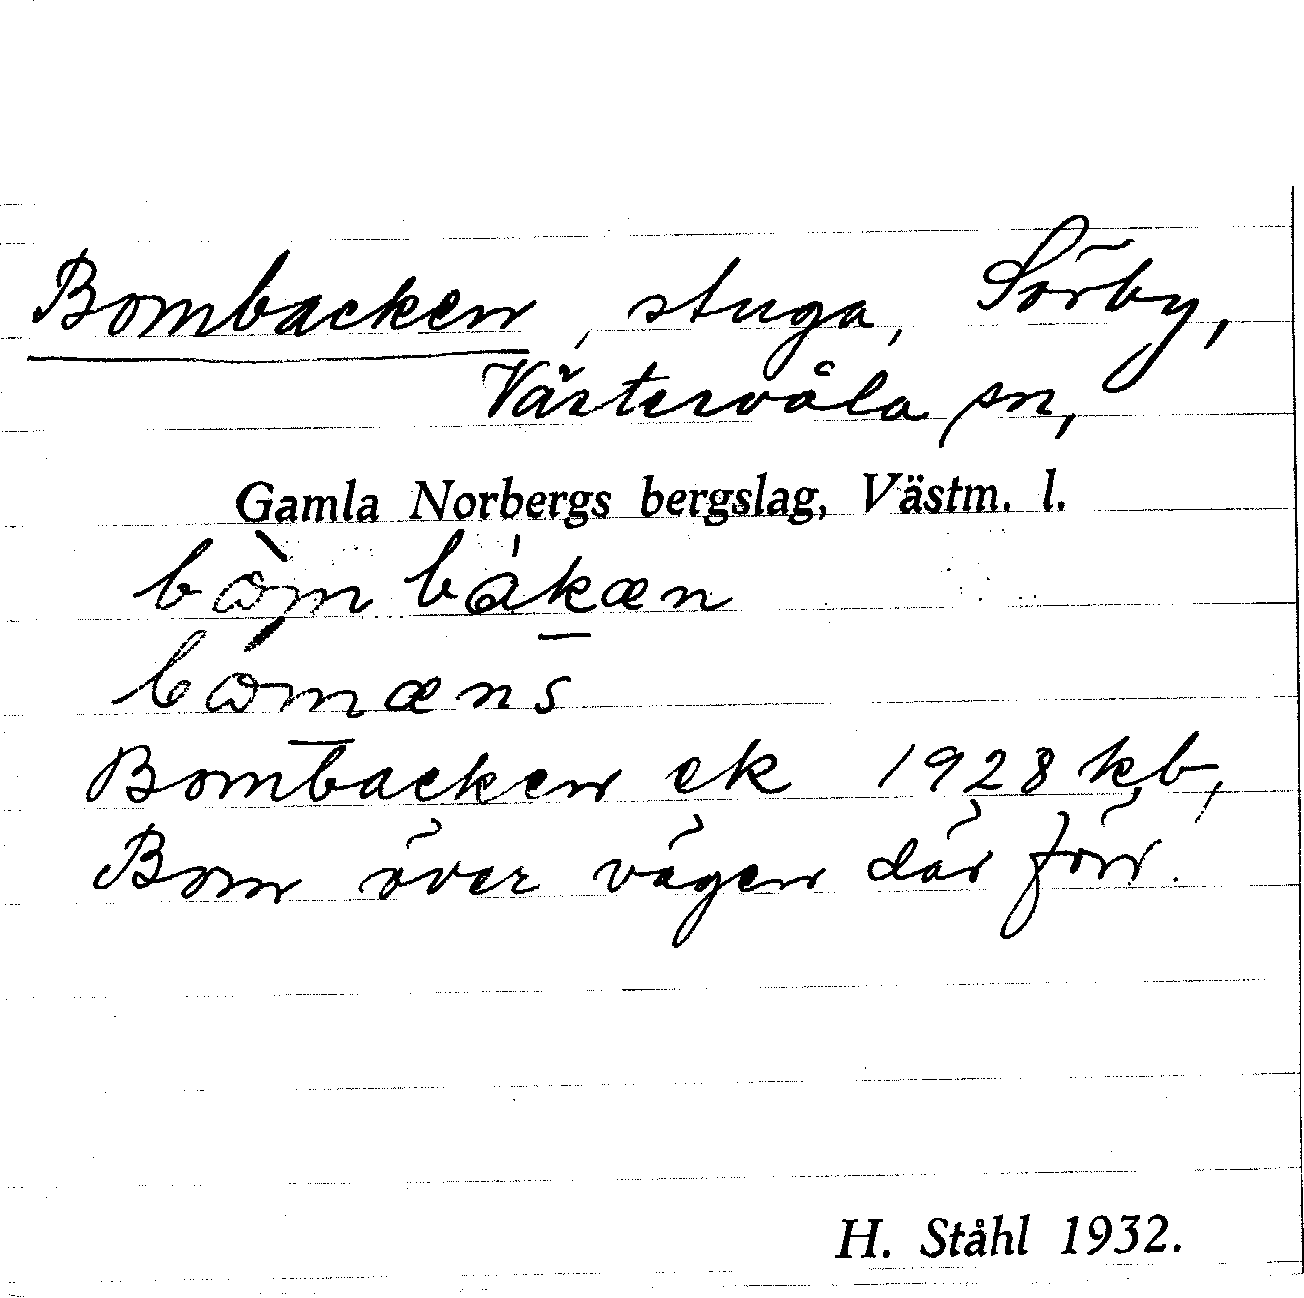 Bombacken, stuga, Sörby,
Västervåla sn,
Gamla Norbergs bergslag, Västm. l.
bòmbákæn
bomæns
Bombacken ek 1928 kb,
Bom över vägen där förr.
H. Ståhl 1932.